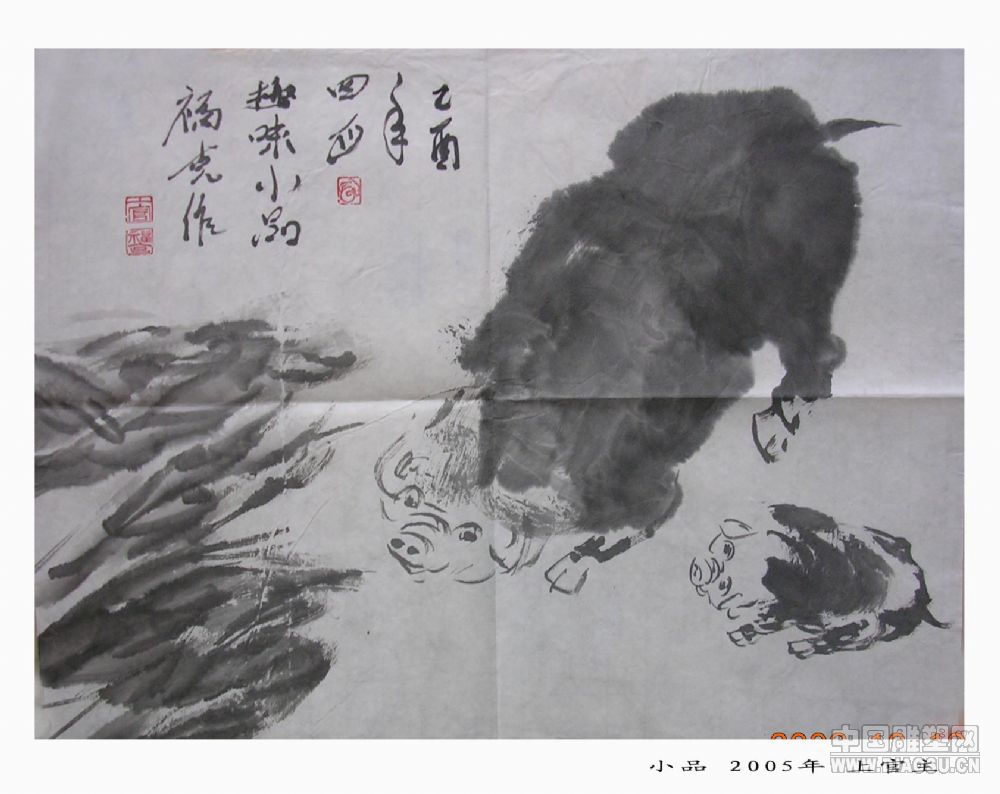 乙酉
年
四月
趣味小品
福作
上官
中国雕塑网
WWW.DIAOSU.CN
小品 2005年 上官